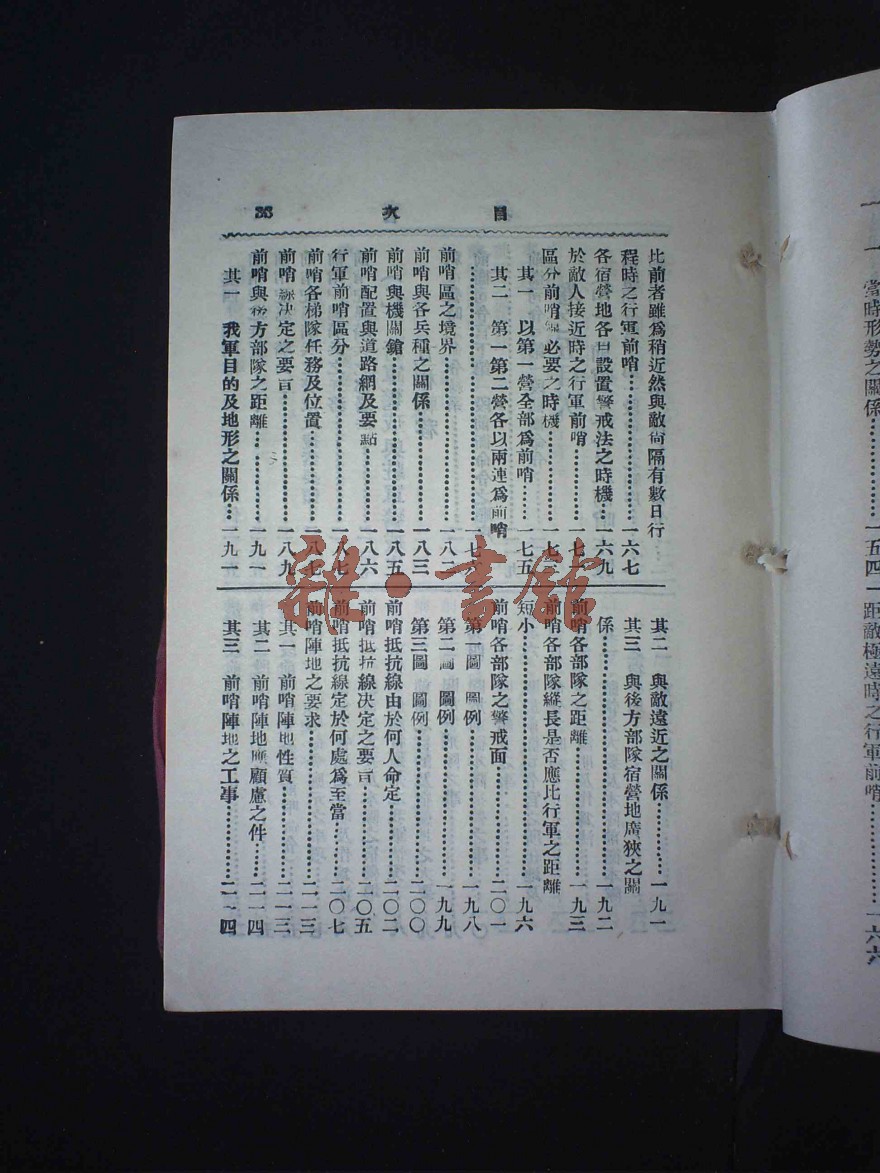 目次
比前者雖爲稍近然與敵尙隔有數日行
程時之行軍前哨…………一六七
各宿營地各自設置警戒法之時機…一六九
於敵人接近時之行軍前哨…………一七一
區分前哨 必要之時機…………一七
其一 以第一營全部爲前哨………一七五
其二 第一第二營各以兩連爲前哨
…………一七
前哨區之境界…………一八
前哨與各兵種之關係…………一八三
前哨與機關鎗…………一八五
前哨配置與道路網及要點…………一八六
行軍前哨區分…………一八七
前哨各梯隊任務及位置…………一八七
前哨 決定之要旨…………一八九
前哨與 方部隊之距離…………一九一
其一 我軍目的及地形之關係…一九一
其二 與敵遠近之關係…………一九一
其三 與後方部隊宿營地廣狹之關
係…………一九二
前哨各部隊之距離…………一九三
前哨各部隊縱長是否應比行軍之距離
短小…………一九六
前哨各部隊之警戒面…………二〇一
第一圖 圖例…………一九八
第二圖 圖例…………一九九
第三圖 圖例…………二〇〇
前哨抵抗線由於何人命定…………二〇二
前哨抵抗線決定之要旨…………二〇五
前哨抵抗線定於何處爲至當…………二〇七
前哨陣地之要求…………二一三
其一 前哨陣地性質…………二一三
其二 前哨陣地應顧慮之件…………二一四
其三 前哨陣地之工事…………二一四
雜·書館
當時形勢之關係…………一五四
距敵極遠時之行軍前哨…………一六六